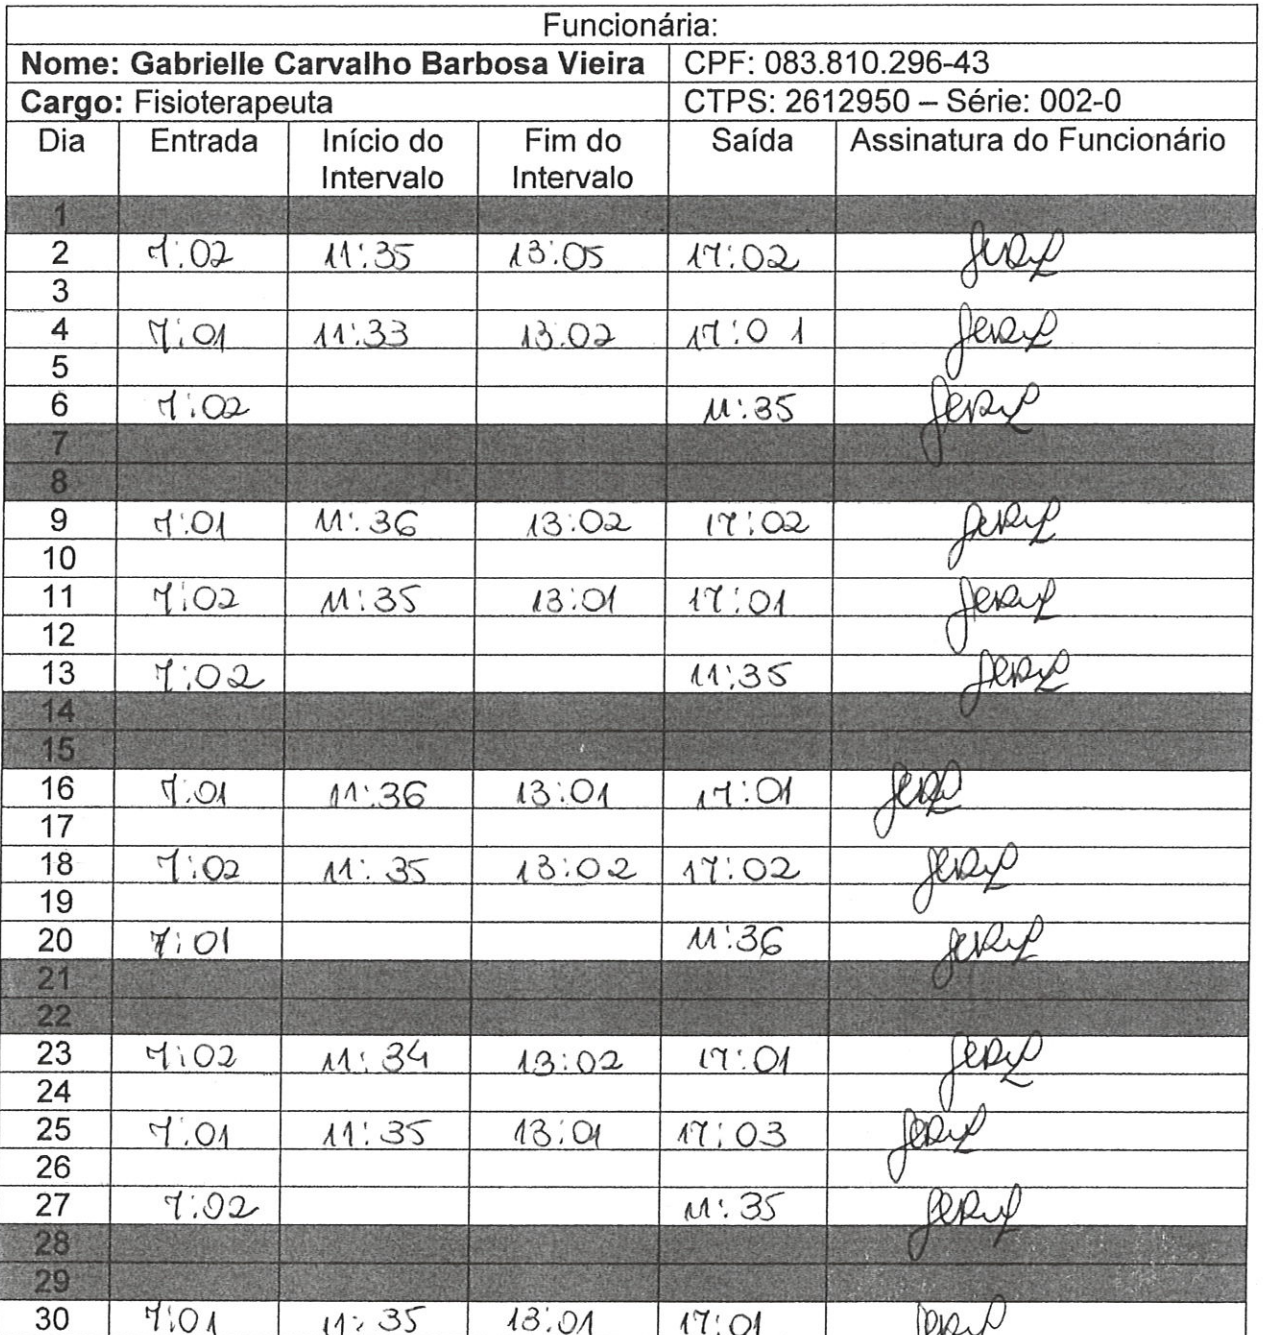 Funcionária:
Nome: Gabrielle Carvalho Barbosa Vieira CPF: 083.810.296-43
Cargo: Fisioterapeuta CTPS: 2612950 – Série: 002-0
Dia Entrada Início do Intervalo Fim do Intervalo Saída Assinatura do Funcionário
1
2 7:02 11:35 13:05 17:02
3
4 7:01 11:33 13:02 17:01
5
6 7:02 11:35
7
8
9 7:01 11:36 13:02 17:02
10
11 7:02 11:35 13:01 17:01
12
13 7:02 11:35
14
15
16 7:01 11:36 13:01 17:01
17
18 7:02 11:35 13:02 17:02
19
20 7:01 11:36
21
22
23 7:02 11:34 13:02 17:01
24
25 7:01 11:35 13:01 17:03
26
27 7:02 11:35
28
29
30 7:01 11:35 13:01 17:01